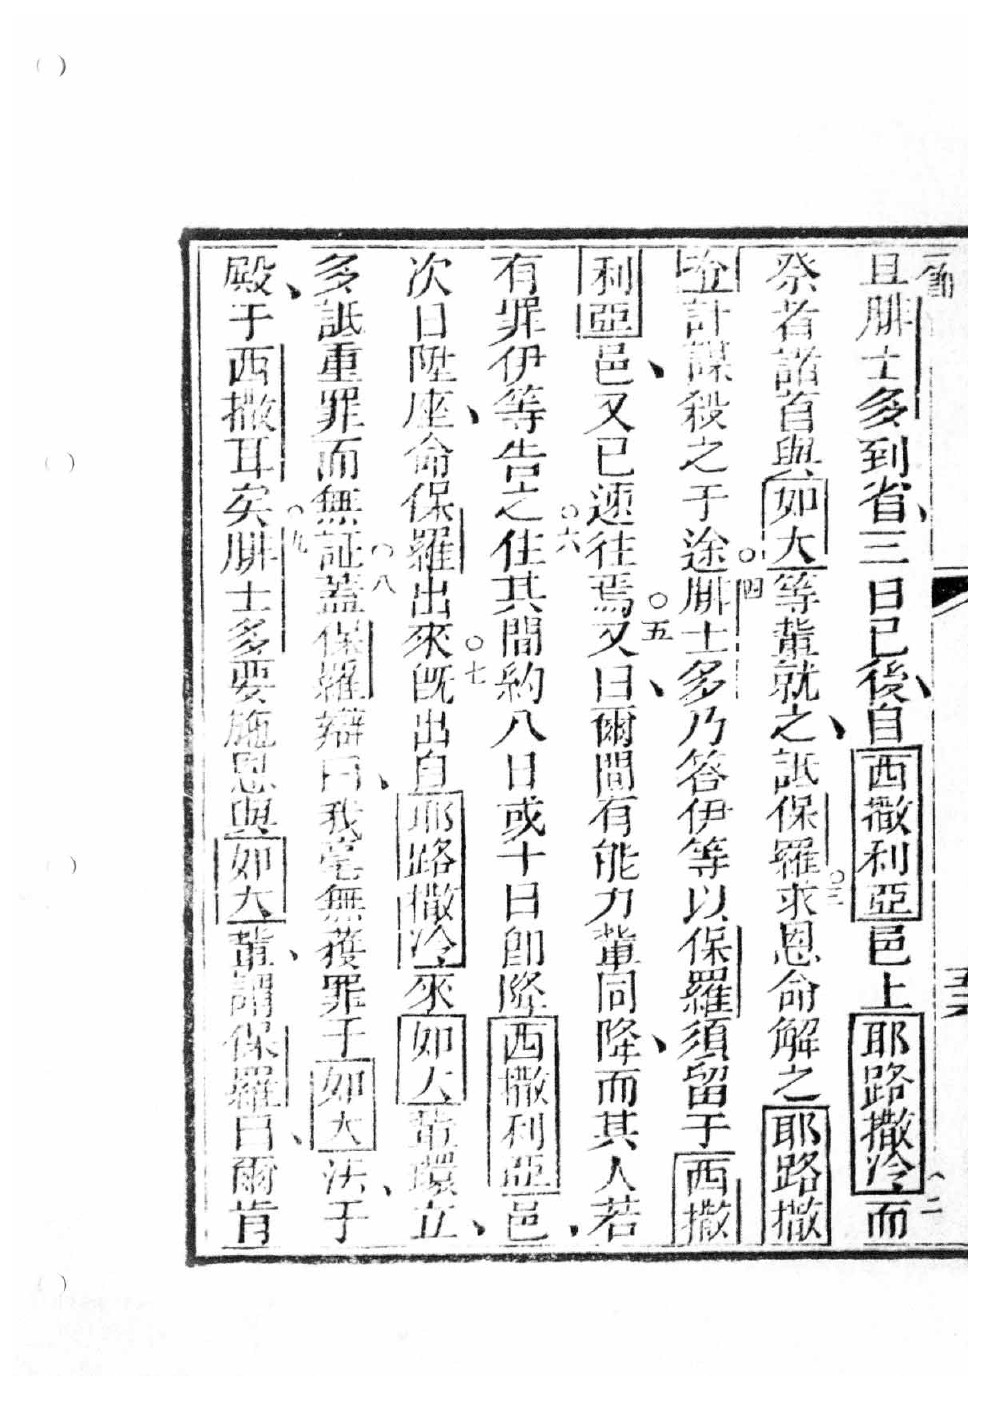 且腓士多到省三日已後自西撒利亞邑上耶路撒冷而
祭者諸首與如大等輩就之詆保羅求恩命解之耶路撒
冷計謀殺之于途腓士多乃答伊等以保羅須留于西撒
利亞邑又已速往焉又曰爾間有能力輩同降而其人若
有罪伊等告之住其間約八日或十日卽降西撒利亞邑
次日陞座命保羅出來旣出自耶路撒冷來如大輩環立
多詆重罪而無証蓋保羅辯曰我毫無獲罪于如大法于
殿于西撒耳矣腓士多要施恩與如大輩謂保羅曰爾肯